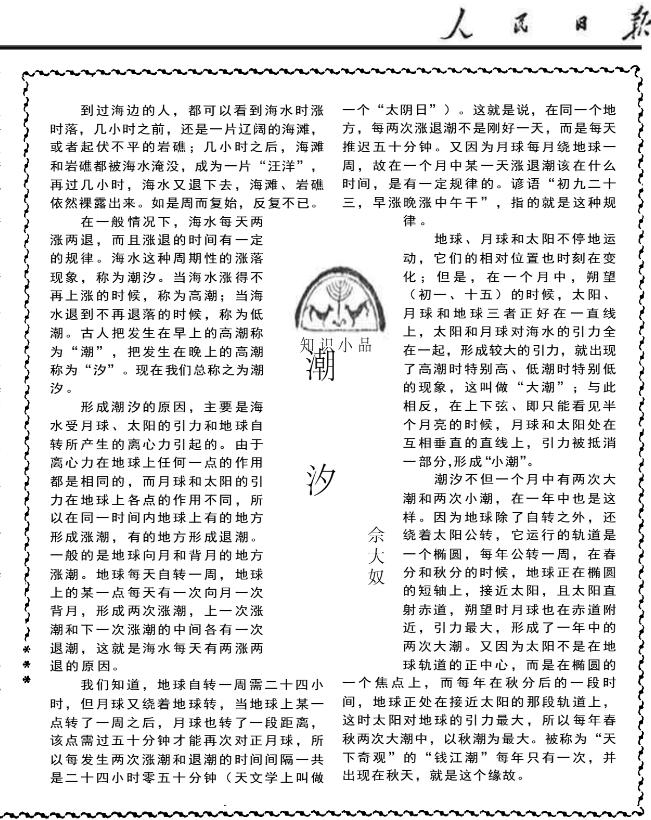 人民日报
到过海边的人，都可以看到海水时涨
时落，几小时之前，还是一片辽阔的海滩，
或者起伏不平的岩礁；几小时之后，海滩
和岩礁都被海水淹没，成为一片“汪洋”，
再过几小时，海水又退下去，海滩、岩礁
依然裸露出来。如是周而复始，反复不已。
在一般情况下，海水每天两
涨两退，而且涨退的时间有一定
的规律。海水这种周期性的涨落
现象，称为潮汐。当海水涨得不
再上涨的时候，称为高潮；当海
水退到不再退落的时候，称为低
潮。古人把发生在早上的高潮称
为“潮”，把发生在晚上的高潮
称为“汐”。现在我们总称之为潮
汐。
形成潮汐的原因，主要是海
水受月球、太阳的引力和地球自
转所产生的离心力引起的。由于
离心力在地球上任何一点的作用
都是相同的，而月球和太阳的引
力在地球上各点的作用不同，所
以在同一时间内地球上有的地方
形成涨潮，有的地方形成退潮。
一般的是地球向月和背月的地方
涨潮。地球每天自转一周，地球
上的某一点每天有一次向月一次
背月，形成两次涨潮，上一次涨
潮和下一次涨潮的中间各有一次
退潮，这就是海水每天有两涨两
退的原因。
我们知道，地球自转一周需二十四小
时，但月球又绕着地球转，当地球上某一
点转了一周之后，月球也转了一段距离，
该点需过五十分钟才能再次对正月球，所
以每发生两次涨潮和退潮的时间间隔一共
是二十四小时零五十分钟（天文学上叫做
知识小品
潮
汐
佘大奴
一个“太阴日”）。这就是说，在同一个地
方，每两次涨退潮不是刚好一天，而是每天
推迟五十分钟。又因为月球每月绕地球一
周，故在一个月中某一天涨退潮该在什么
时间，是有一定规律的。谚语“初九二十
三，早涨晚涨中午干”，指的就是这种规
律。
地球、月球和太阳不停地运
动，它们的相对位置也时刻在变
化；但是，在一个月中，朔望
（初一、十五）的时候，太阳、
月球和地球三者正好在一直线
上，太阳和月球对海水的引力全
在一起，形成较大的引力，就出现
了高潮时特别高、低潮时特别低
的现象，这叫做“大潮”；与此
相反，在上下弦、即只能看见半
个月亮的时候，月球和太阳处在
互相垂直的直线上，引力被抵消
一部分,形成“小潮”。
潮汐不但一个月中有两次大
潮和两次小潮，在一年中也是这
样。因为地球除了自转之外，还
绕着太阳公转，它运行的轨道是
一个椭圆，每年公转一周，在春
分和秋分的时候，地球正在椭圆
的短轴上，接近太阳，且太阳直
射赤道，朔望时月球也在赤道附
近，引力最大，形成了一年中的
两次大潮。又因为太阳不是在地
球轨道的正中心，而是在椭圆的
一个焦点上，而每年在秋分后的一段时
间，地球正处在接近太阳的那段轨道上，
这时太阳对地球的引力最大，所以每年春
秋两次大潮中，以秋潮为最大。被称为“天
下奇观”的“钱江潮”每年只有一次，并
出现在秋天，就是这个缘故。